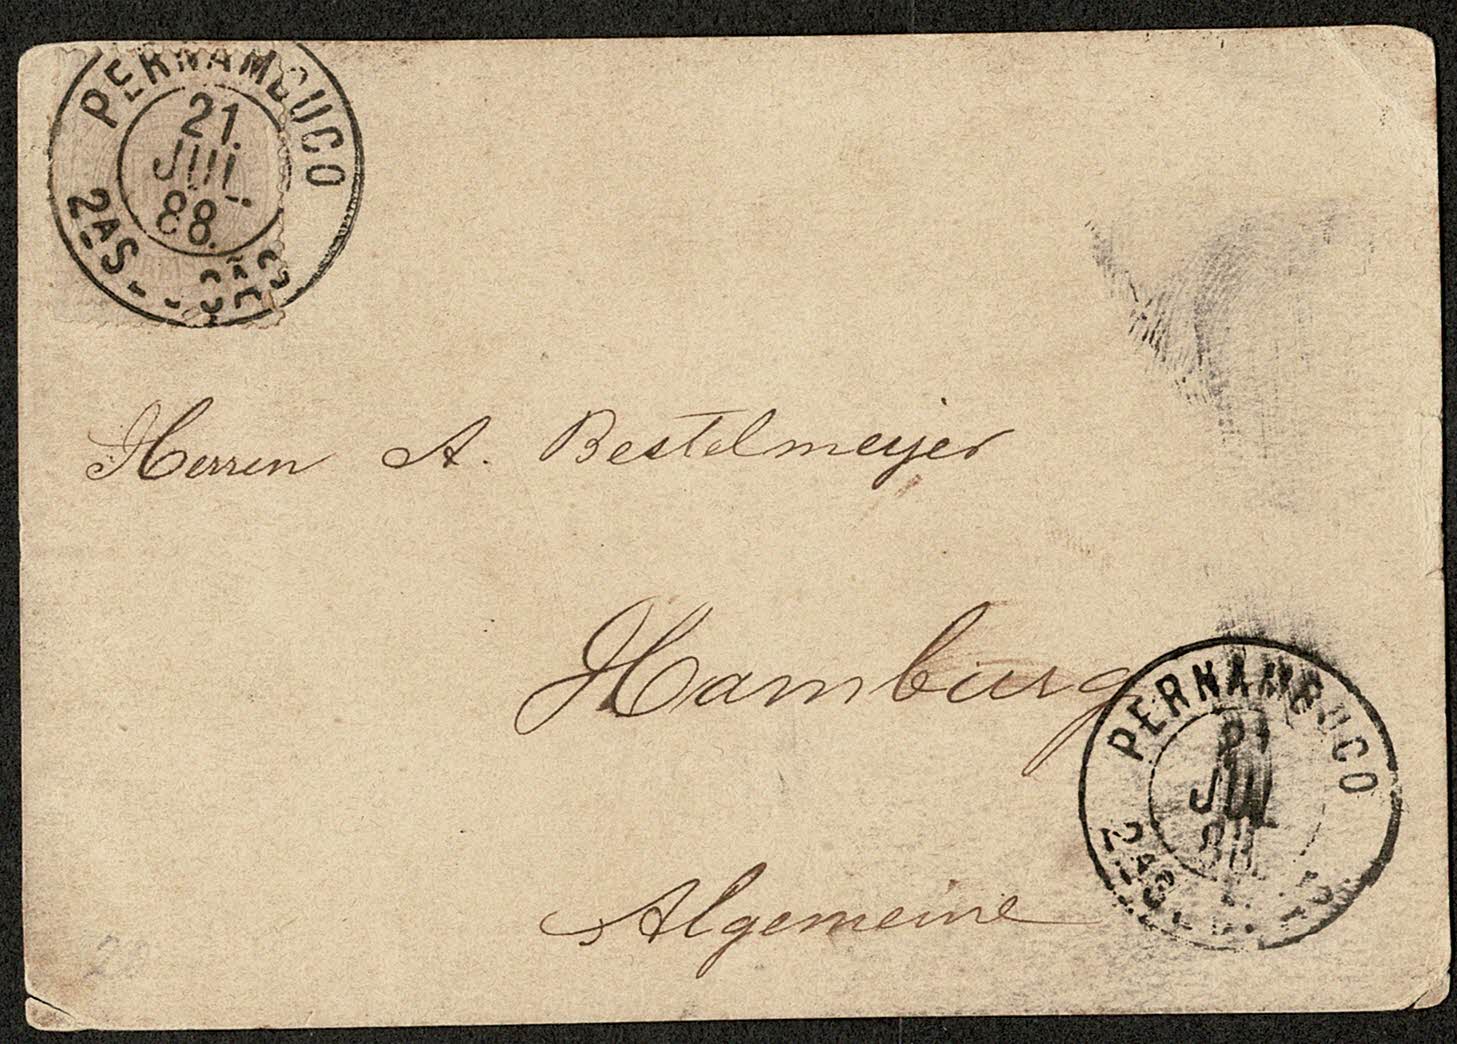 PERNAMBUCO
21
JUL
88.
2AS
REIS
Herren A. Bestelmeyer
Hamburg
Algemeine
PERNAMBUCO
21
JUL
88
2AS
28